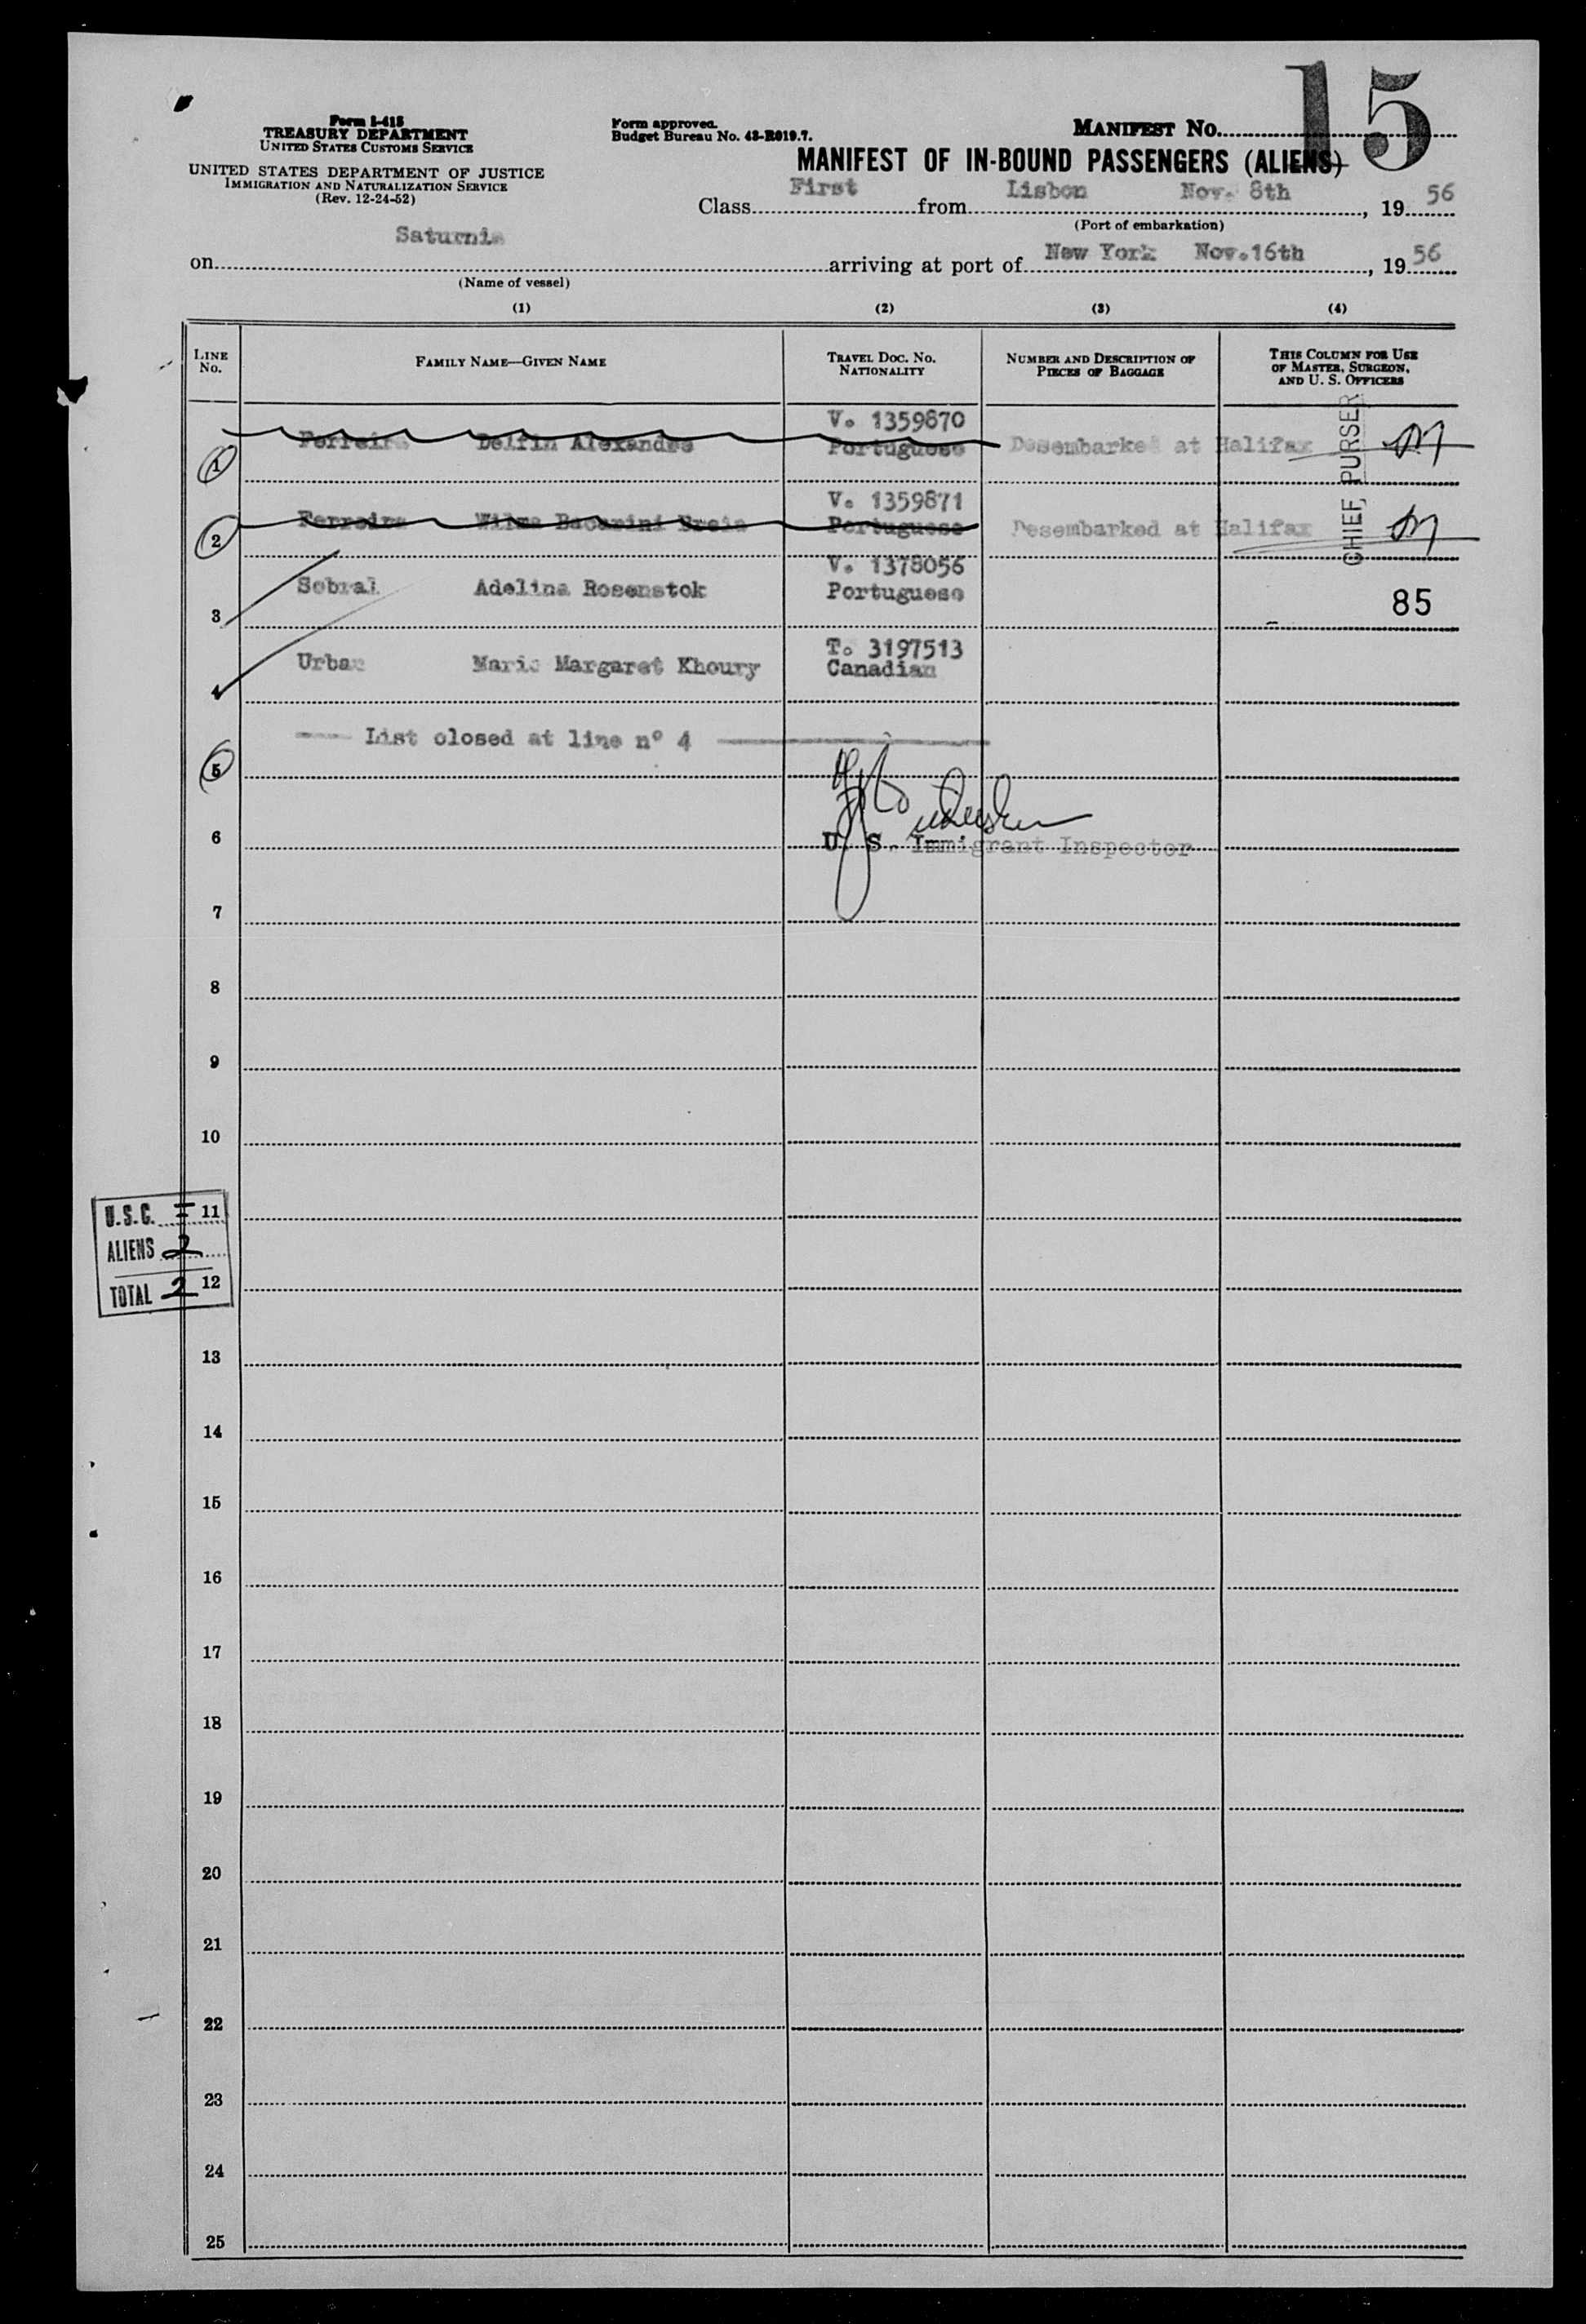 15
Form I-418
TREASURY DEPARTMENT
UNITED STATES CUSTOMS SERVICE
UNITED STATES DEPARTMENT OF JUSTICE
IMMIGRATION AND NATURALIZATION SERVICE
(Rev. 12-24-52)
Form approved.
Budget Bureau No. 43-R019.7.
MANIFEST NO.
MANIFEST OF IN-BOUND PASSENGERS (ALIENS)
Class First from Lisbon Nov. 8th, 19 56
(Port of embarkation)
on Saturnia arriving at port of New York Nov. 16th, 19 56
(Name of vessel)
(1) (2) (3) (4)
LINE NO. FAMILY NAME—GIVEN NAME TRAVEL DOC. NO. NATIONALITY NUMBER AND DESCRIPTION OF PIECES OF BAGGAGE THIS COLUMN FOR USE OF MASTER, SURGEON, AND U. S. OFFICERS
V. 1359870
1 Ferreira Delfin Alexandre Portuguese Desembarked at Halifax
V. 1359871
2 Ferreira Wilma Portuguese Desembarked at Halifax
CHIEF PURSER
V. 1378056
3 Sobral Adelina Rosenstok Portuguese 85
T. 3197513
4 Urban Marie Margaret Khoury Canadian
List closed at line nº 4
5
6 U. S. Immigrant Inspector
7
8
9
10
11
U.S.C.
ALIENS 2
TOTAL 2
12
13
14
15
16
17
18
19
20
21
22
23
24
25